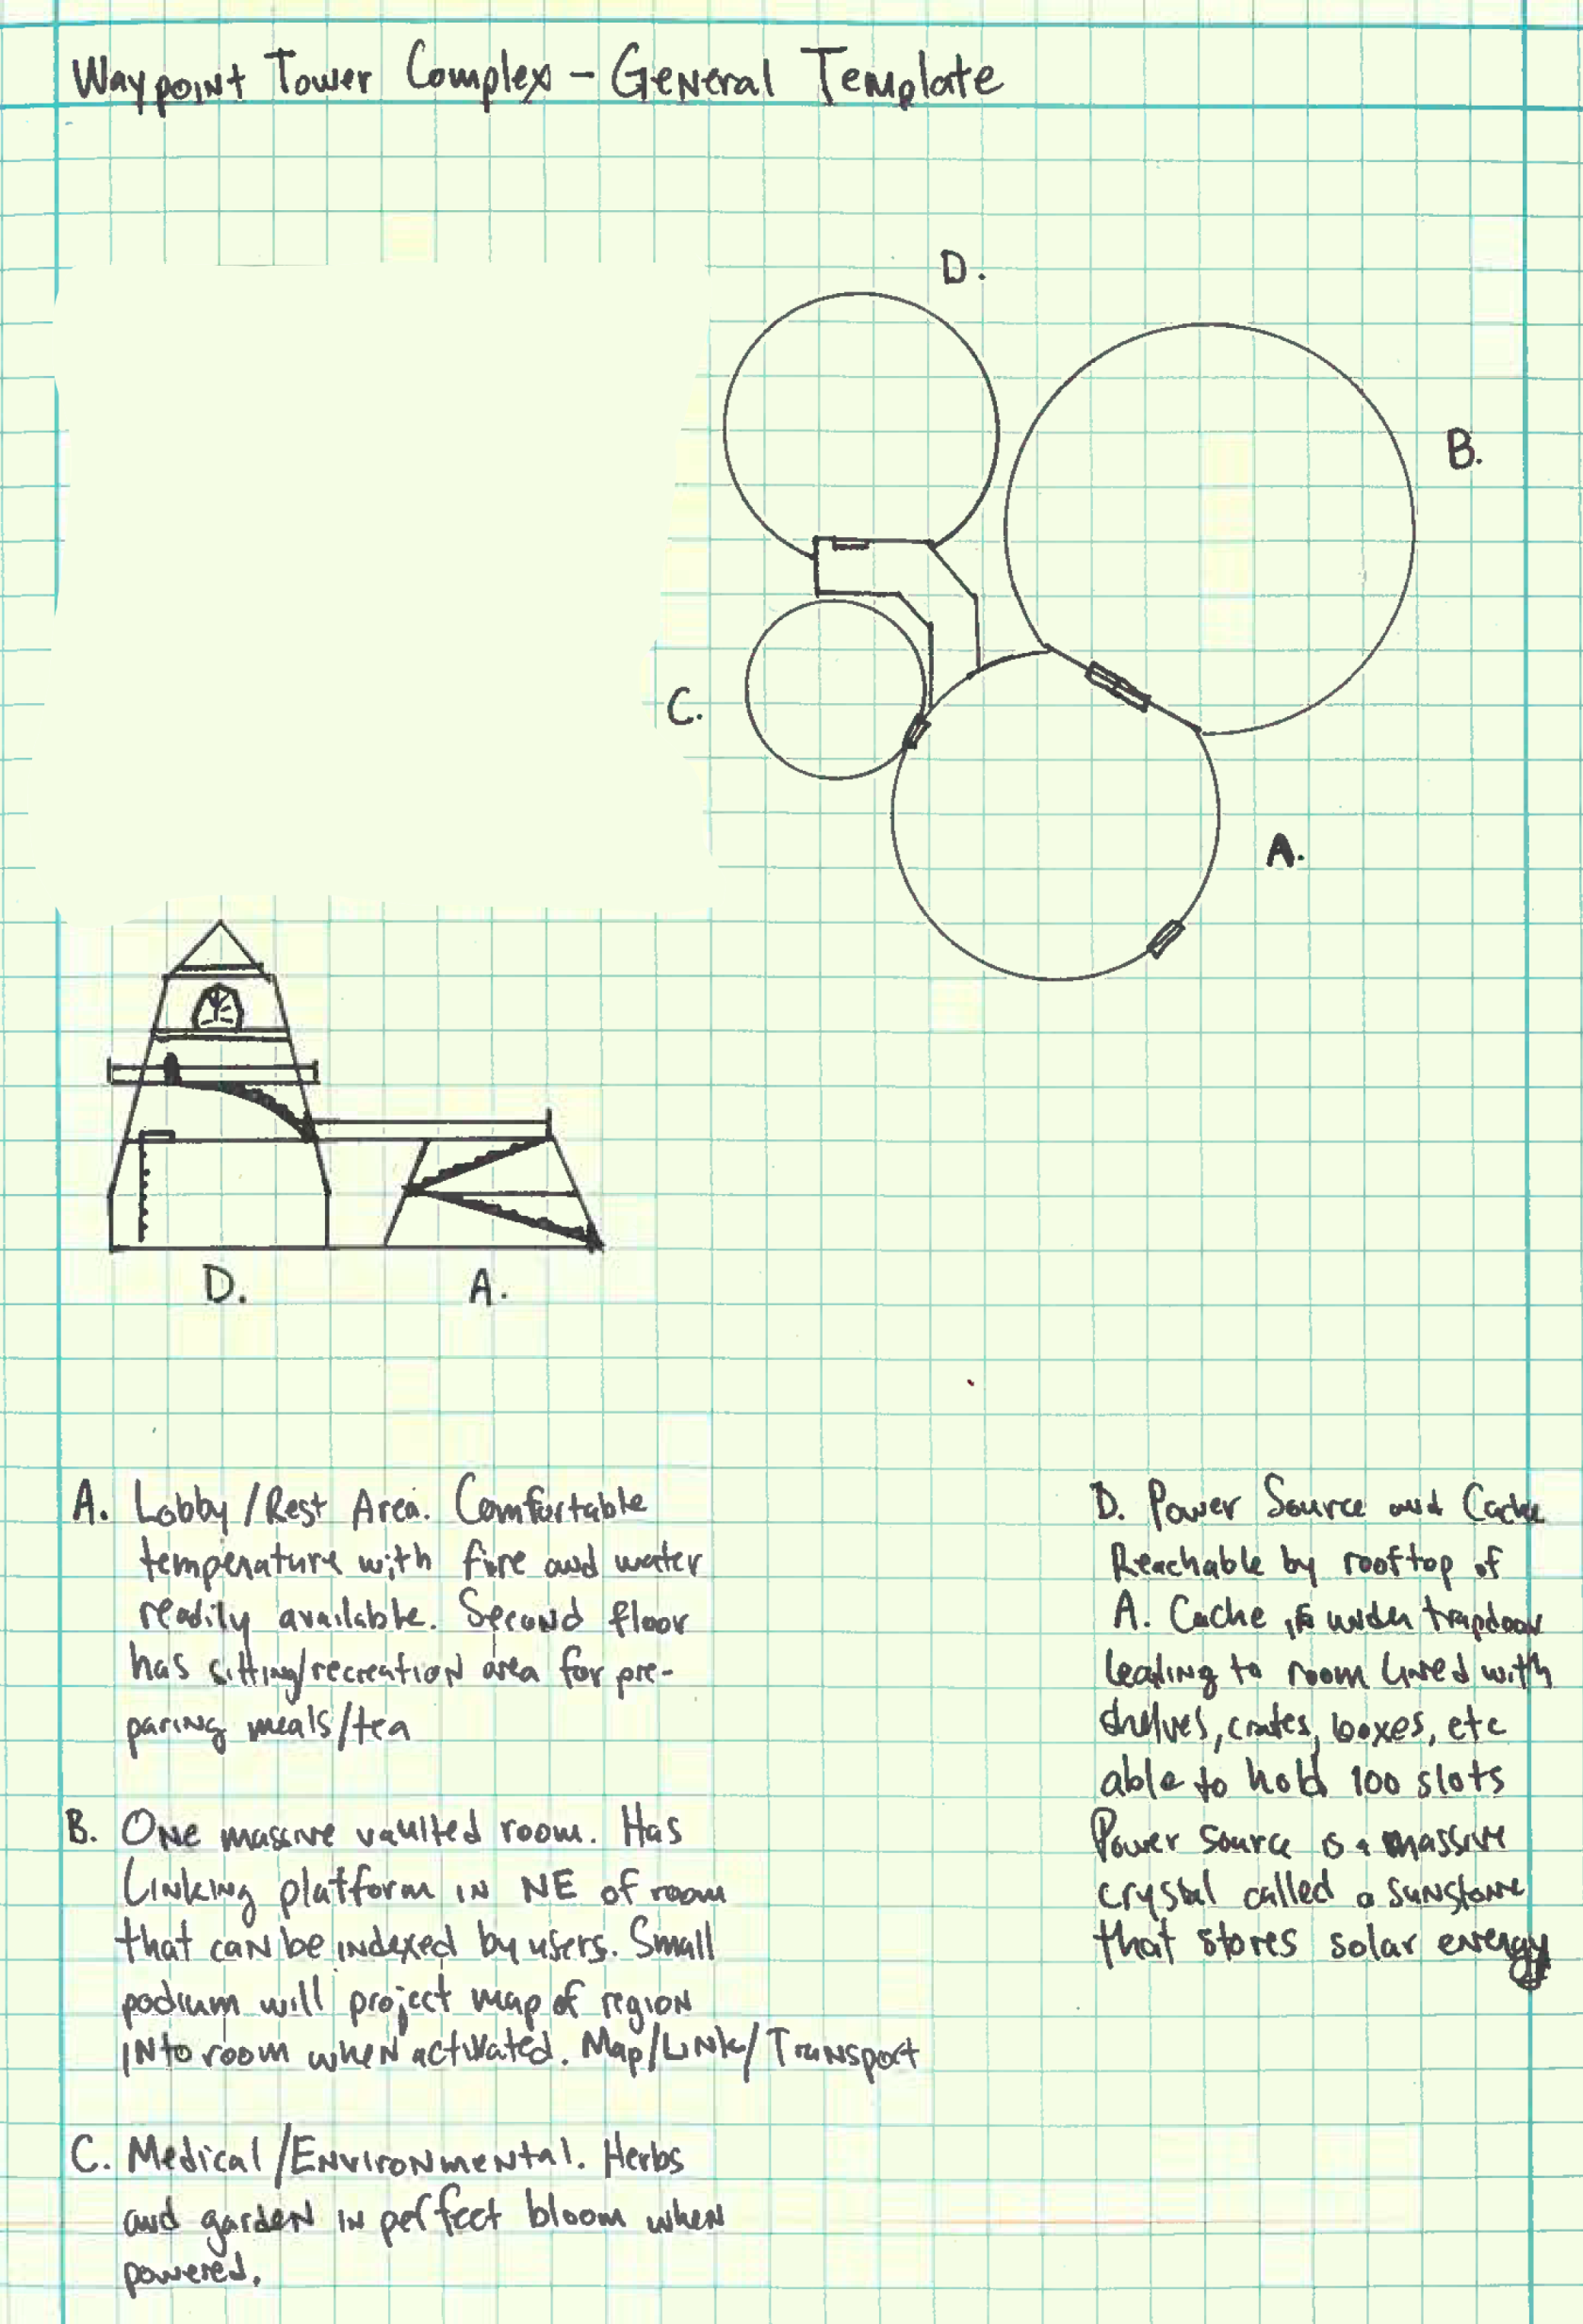 Waypoint Tower Complex - General Template
D.
B.
C.
A.
D.
A.
A. Lobby/Rest Area. Comfortable
temperature with fire and water
readily available. Second floor
has sitting/recreation area for pre-
paring meals/tea
B. One massive vaulted room. Has
Linking platform in NE of room
that can be indexed by users. Small
podium will project map of region
into room when activated. Map/Link/Transport
C. Medical/Environmental. Herbs
and garden in perfect bloom when
powered.
D. Power Source and Cache
Reachable by rooftop of
A. Cache is under trapdoor
leading to room lined with
shelves, crates, boxes, etc
able to hold 100 slots
Power source is a massive
crystal called a sunstone
that stores solar energy